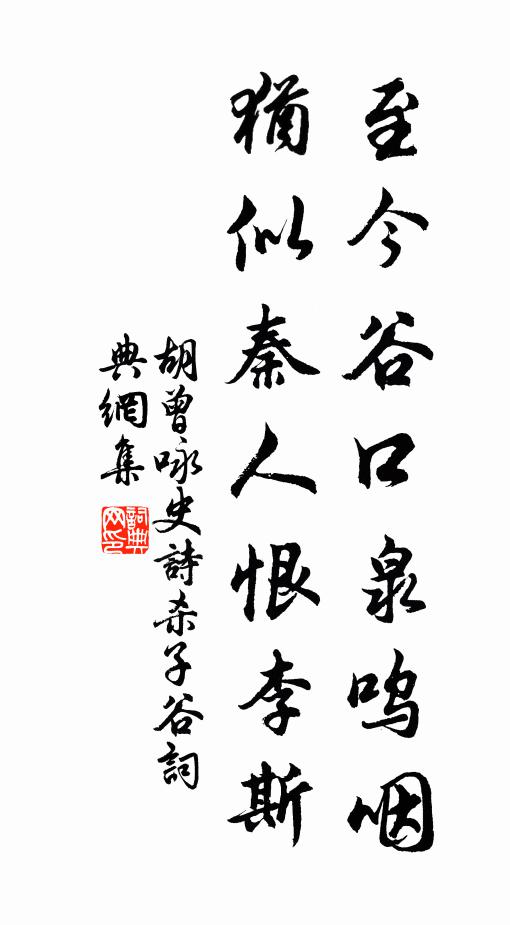 至今谷口泉呜咽
猶似秦人恨李斯
胡曾咏史詩杀子谷詞
典網集
詞典网印